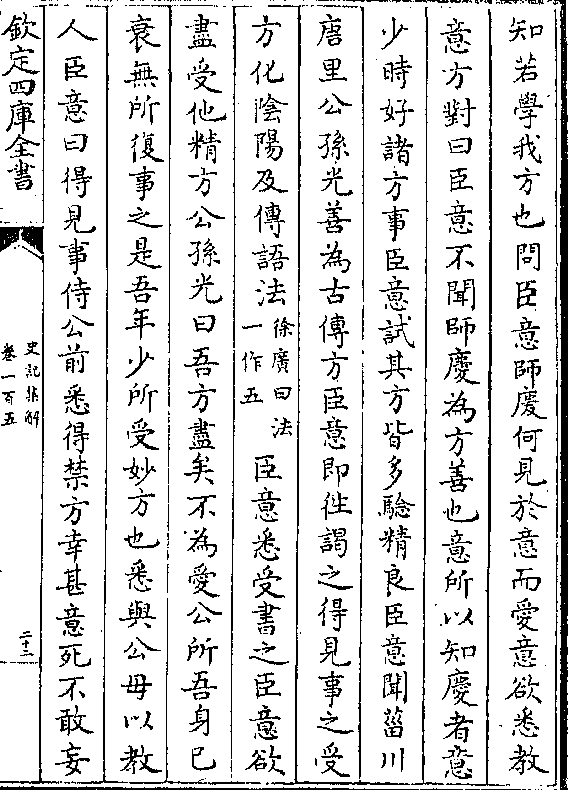 知若學我方也問臣意師慶何見於意而愛意欲悉教
意方對曰臣意不聞師慶為方善也意所以知慶者意
少時好諸方事臣意試其方皆多驗精良臣意聞菑川
唐里公孫光善為古傳方臣意即往謁之得見事之受
方化陰陽及傳語法徐廣曰法一作五臣意悉受書之臣意欲
盡受他精方公孫光曰吾方盡矣不為愛公所吾身已
衰無所復事之是吾年少所受妙方也悉與公毋以教
人臣意曰得見事侍公前悉得禁方幸甚意死不敢妄
欽定四庫全書
史記集解
卷一百五
二十二